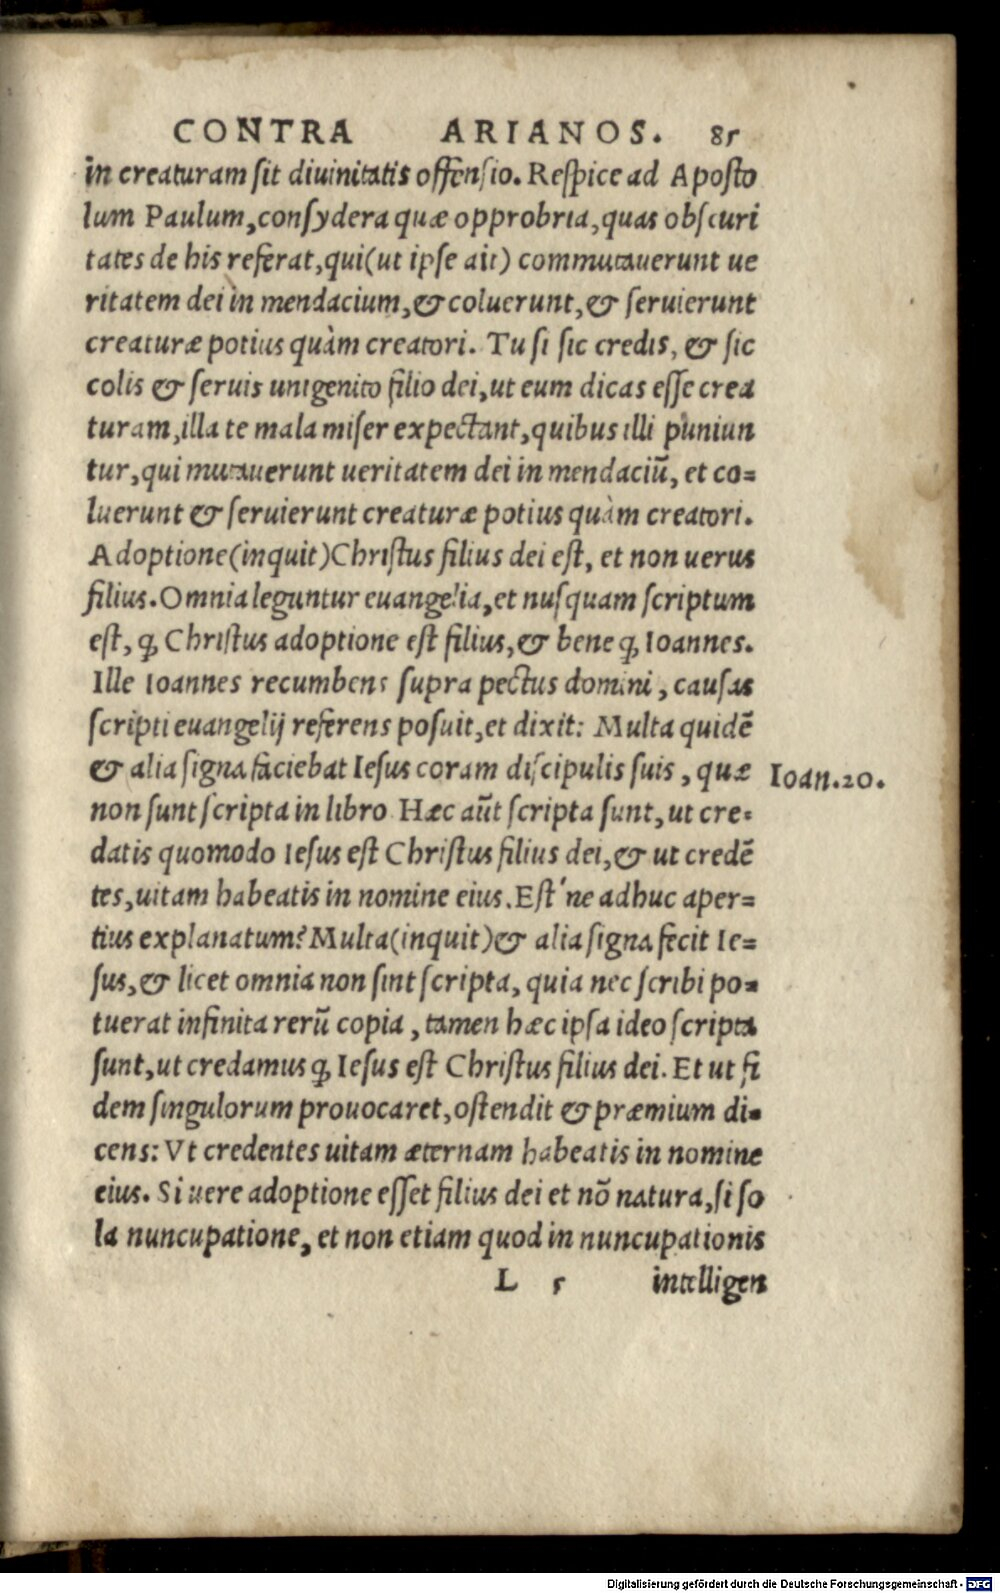 CONTRA ARIANOS. 85
in creaturam sit diuinitatis offensio. Respice ad Aposto
lum Paulum, consydera quæ opprobria, quas obscuri
tates de his referat, qui (ut ipse ait) commutauerunt ue
ritatem dei in mendacium, & coluerunt, & seruierunt
creaturæ potius quàm creatori. Tu si sic credis, & sic
colis & seruis unigenito filio dei, ut eum dicas esse crea
turam, illa te mala miser expectant, quibus illi puniun
tur, qui mutauerunt ueritatem dei in mendaciū, et co=
luerunt & seruierunt creaturæ potius quàm creatori.
Adoptione (inquit) Christus filius dei est, et non uerus
filius. Omnia leguntur euangelia, et nusquam scriptum
est, ꝙ Christus adoptione est filius, & bene ꝙ Ioannes.
Ille Ioannes recumbens supra pectus domini, causas
scripti euangelij referens posuit, et dixit: Multa quidē
& alia signa faciebat Iesus coram discipulis suis, quæ
Ioan. 20.
non sunt scripta in libro Hæc aūt scripta sunt, ut cre=
datis quomodo Iesus est Christus filius dei, & ut credē
tes, uitam habeatis in nomine eius. Est'ne adhuc aper=
tius explanatum? Multa (inquit) & alia signa fecit Ie=
sus, & licet omnia non sint scripta, quia nec scribi po=
tuerat infinita rerū copia, tamen hæc ipsa ideo scripta
sunt, ut credamus ꝙ Iesus est Christus filius dei. Et ut fi
dem singulorum prouocaret, ostendit & præmium di=
cens: Vt credentes uitam æternam habeatis in nomine
eius. Si uere adoptione esset filius dei et nō natura, si so
la nuncupatione, et non etiam quod in nuncupationis
L 5 intelligen
Digitalisierung gefördert durch die Deutsche Forschungsgemeinschaft - DFG